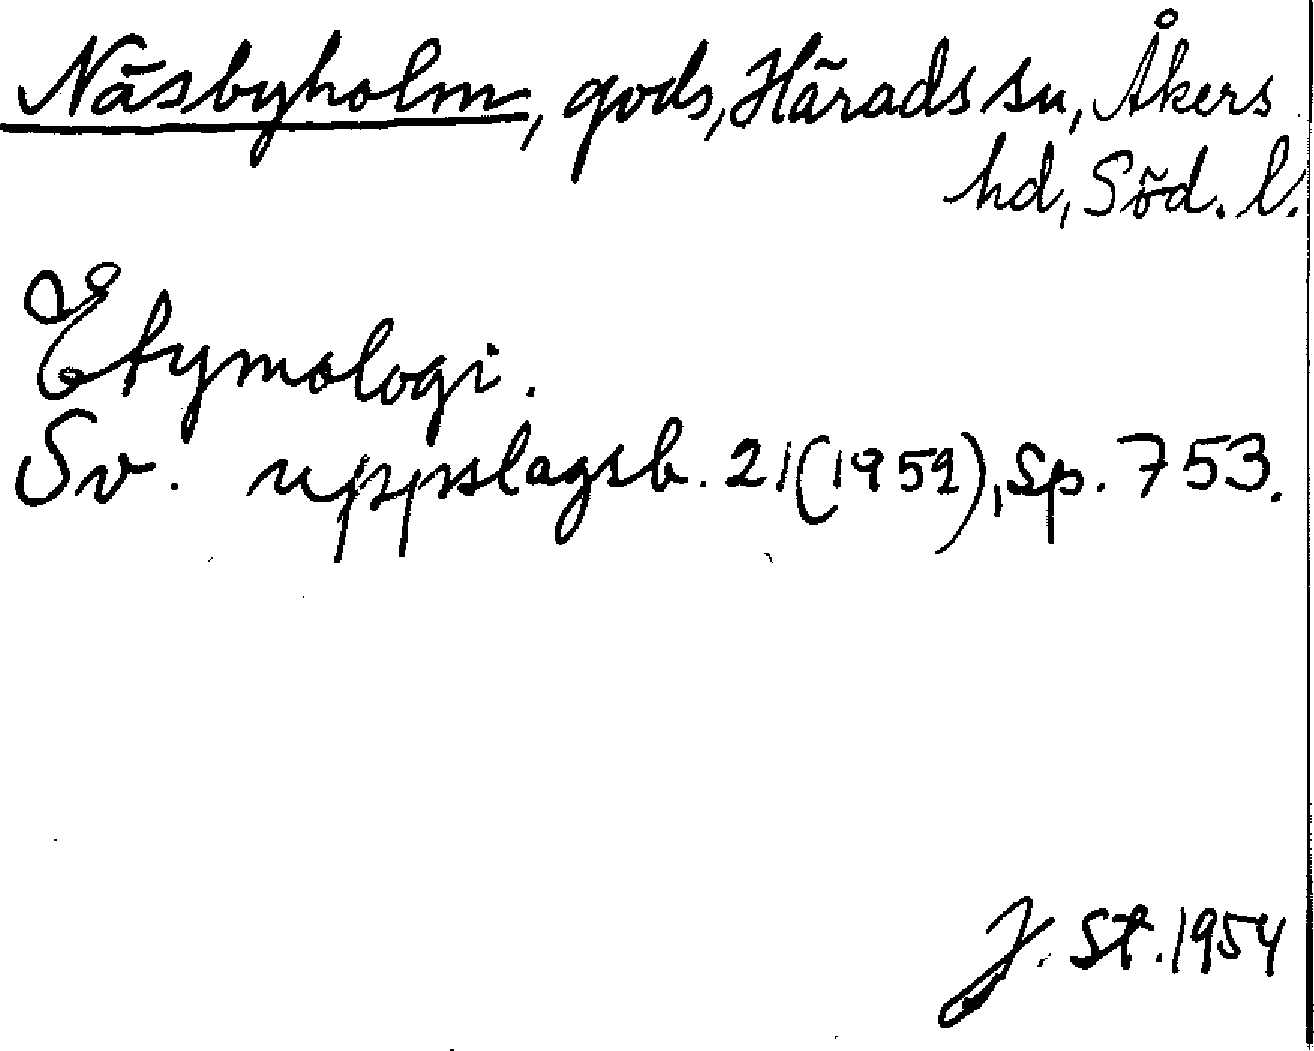 Näsbyholm, gods, Härads sn, Åkers
hd, Söd. l.
Etymologi.
Sv. uppslagsb. 21 (1952), sp. 753.
J. St. 1954